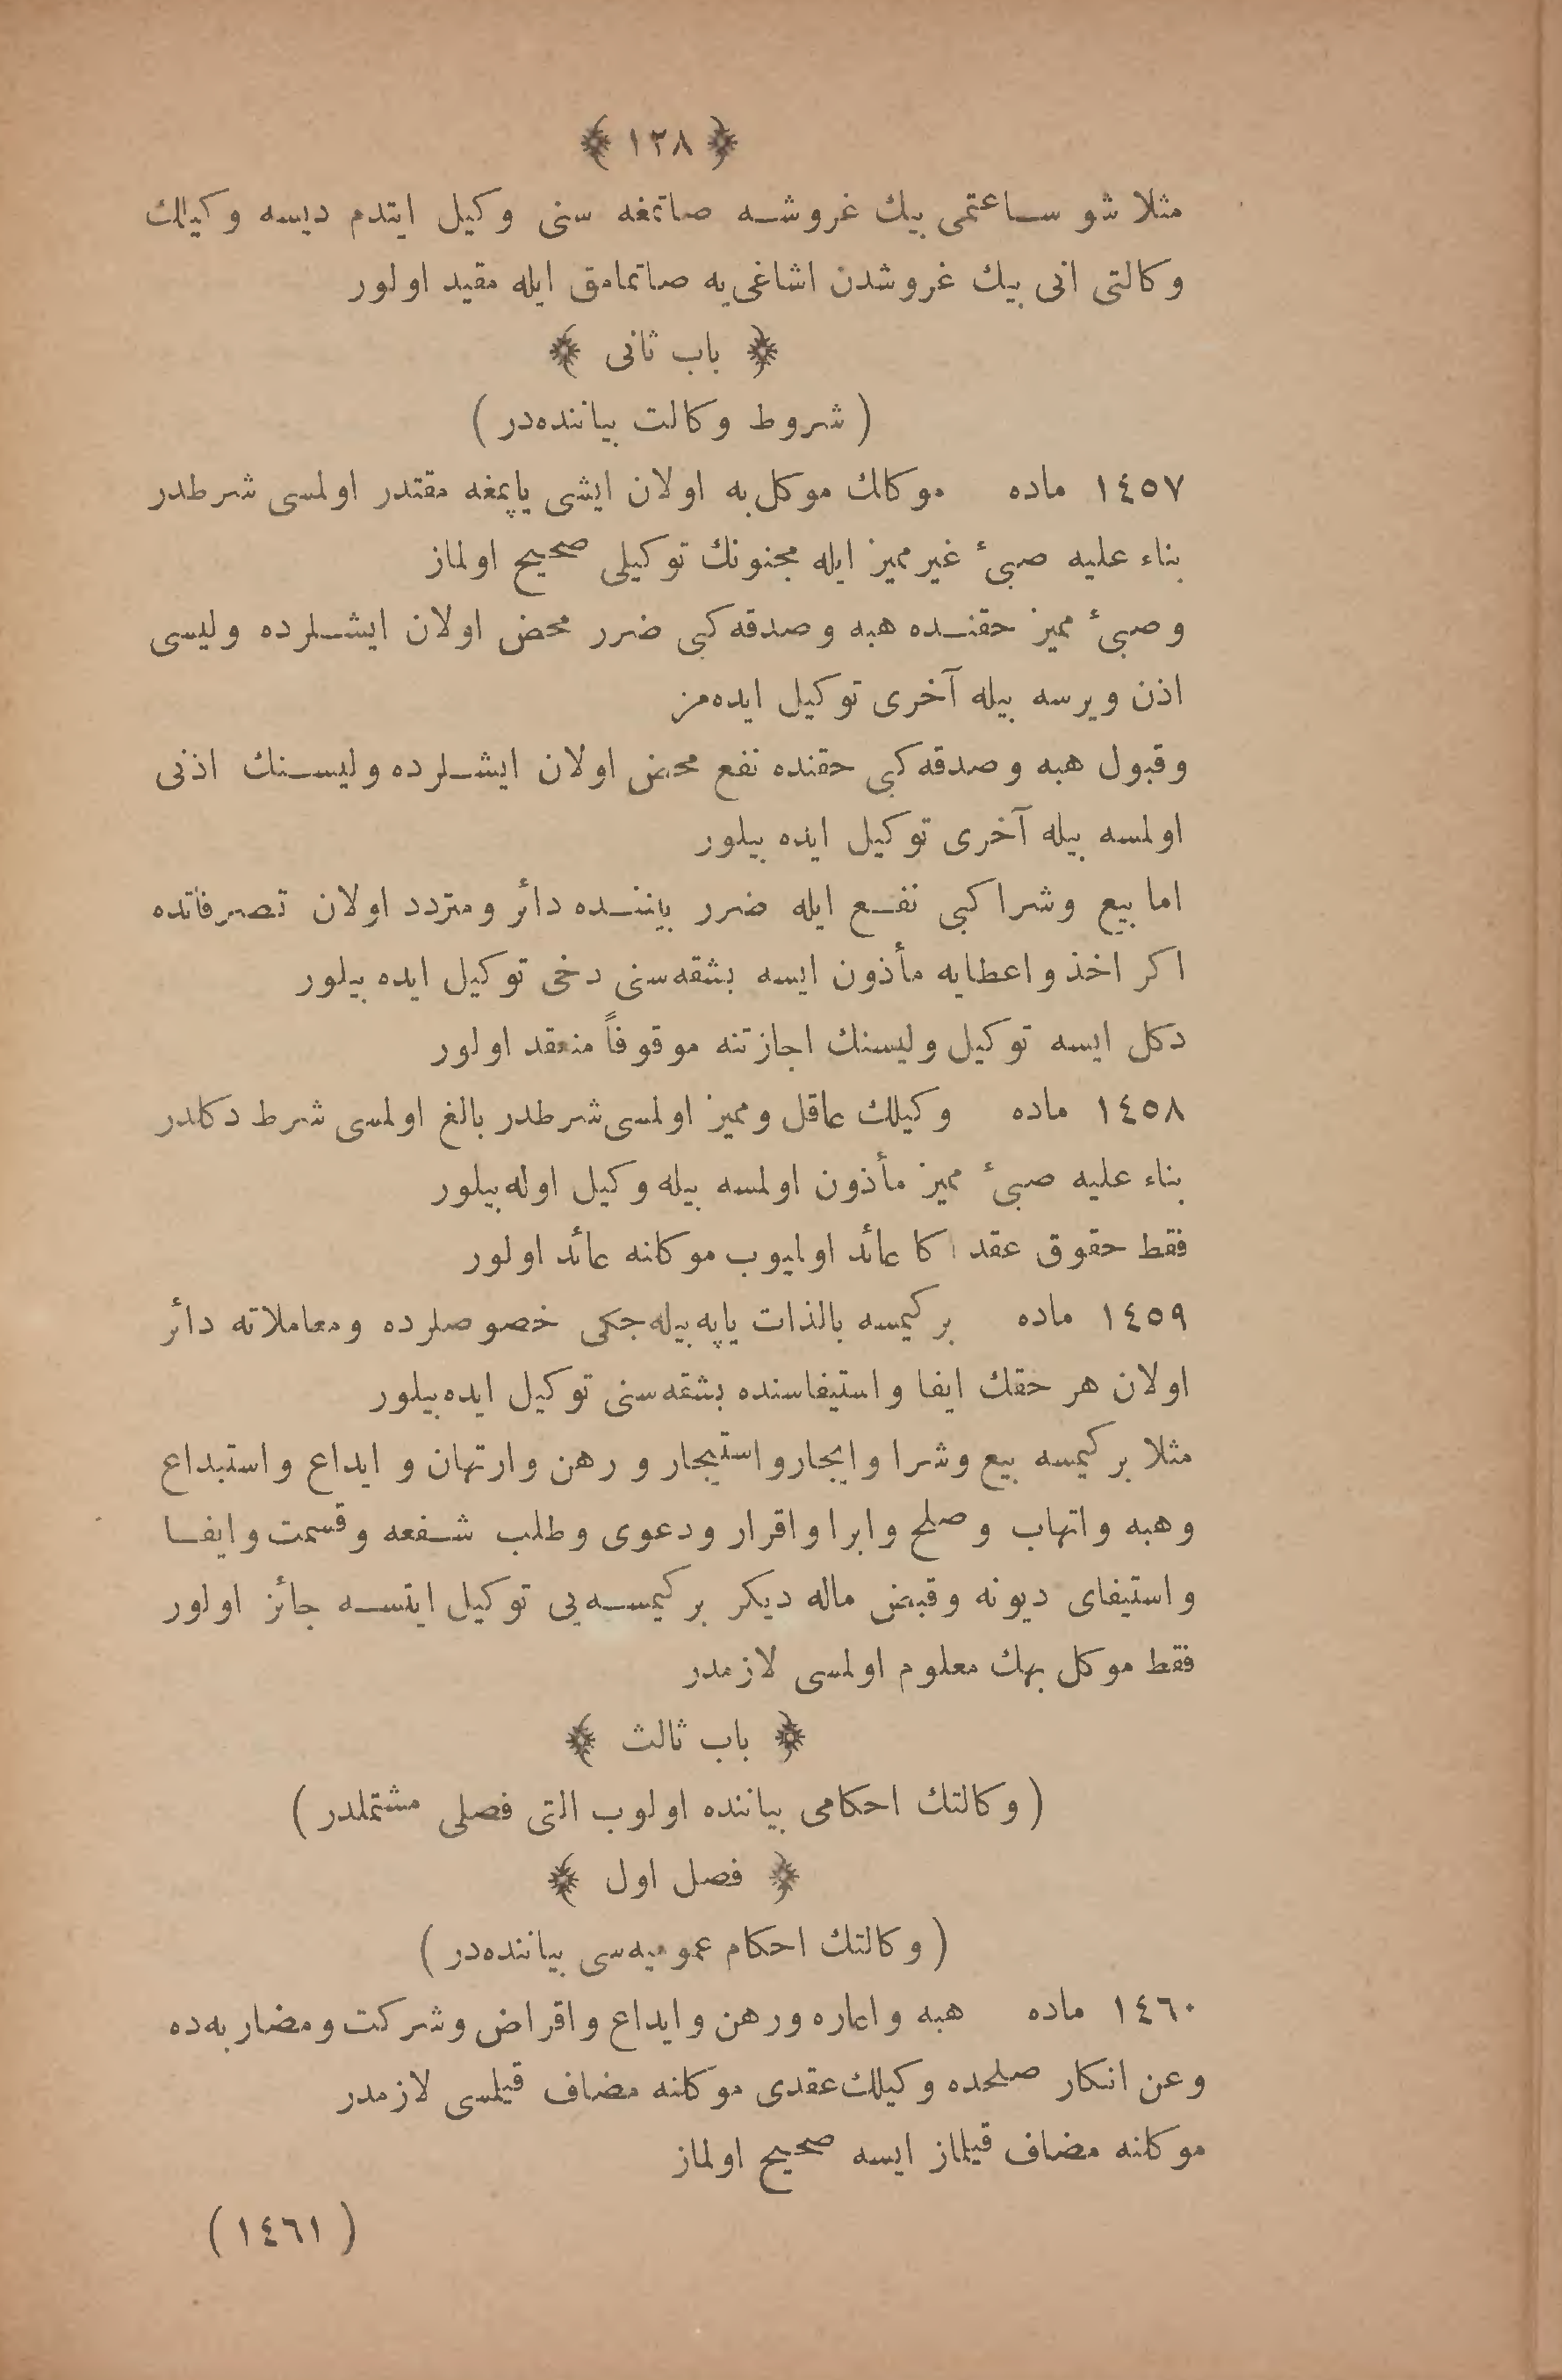 ﴿ ١٣٨ ﴾
مثلا شو ساعتمى بيك غروشه صاتمغه سنى وكيل ايتدم ديسه وكيلك
وكالتى انى بيك غروشدن اشاغى‌يه صاتمامق ايله مقيد اولور
﴿ باب ثانى ﴾
( شروط وكالت بياننده‌در )
١٤٥٧ ماده موكلك موكل‌به اولان ايشى ياپمغه مقتدر اولمسى شرطدر
بناء عليه صبىء غير مميز ايله مجنونك توكيلى صحيح اولماز
وصبىء مميز حقنده هبه وصدقه كبى ضرر محض اولان ايشلرده وليسى
اذن ويرسه بيله آخرى توكيل ايده‌مز
وقبول هبه وصدقه كبى حقنده نفع محض اولان ايشلرده وليسنك اذنى
اولمسه بيله آخرى توكيل ايده بيلور
اما بيع وشرا كبى نفع ايله ضرر بيننده دائر ومتردد اولان تصرفاتده
اكر اخذ واعطايه مأذون ايسه بشقه‌سنى دخى توكيل ايده بيلور
دكل ايسه توكيل وليسنك اجازتنه موقوفاً منعقد اولور
١٤٥٨ ماده وكيلك عاقل ومميز اولمسى شرطدر بالغ اولمسى شرط دكلدر
بناء عليه صبىء مميز مأذون اولمسه بيله وكيل اوله‌بيلور
فقط حقوق عقد اكا عائد اوليوب موكلنه عائد اولور
١٤٥٩ ماده بر كيمسه بالذات ياپه‌بيله‌جكى خصوصلرده ومعاملاته دائر
اولان هر حقك ايفا واستيفاسنده بشقه‌سنى توكيل ايده‌بيلور
مثلا بر كيمسه بيع وشرا وايجار واستيجار ورهن وارتهان وايداع واستيداع
وهبه واتهاب وصلح وابرا واقرار ودعوى وطلب شفعه وقسمت وايفا
واستيفاى ديونه وقبض ماله ديكر بر كيمسه‌يى توكيل ايتسه جائز اولور
فقط موكل بهك معلوم اولمسى لازمدر
﴿ باب ثالث ﴾
( وكالتك احكامى بياننده اولوب التى فصلى مشتملدر )
﴿ فصل اول ﴾
( وكالتك احكام عموميه‌سى بياننده‌در )
١٤٦٠ ماده هبه واعاره ورهن وايداع واقراض وشركت ومضاربه‌ده
وعن انكار صلحده وكيلك عقدى موكلنه مضاف قيلمسى لازمدر
موكلنه مضاف قيلماز ايسه صحيح اولماز
( ١٤٦١ )